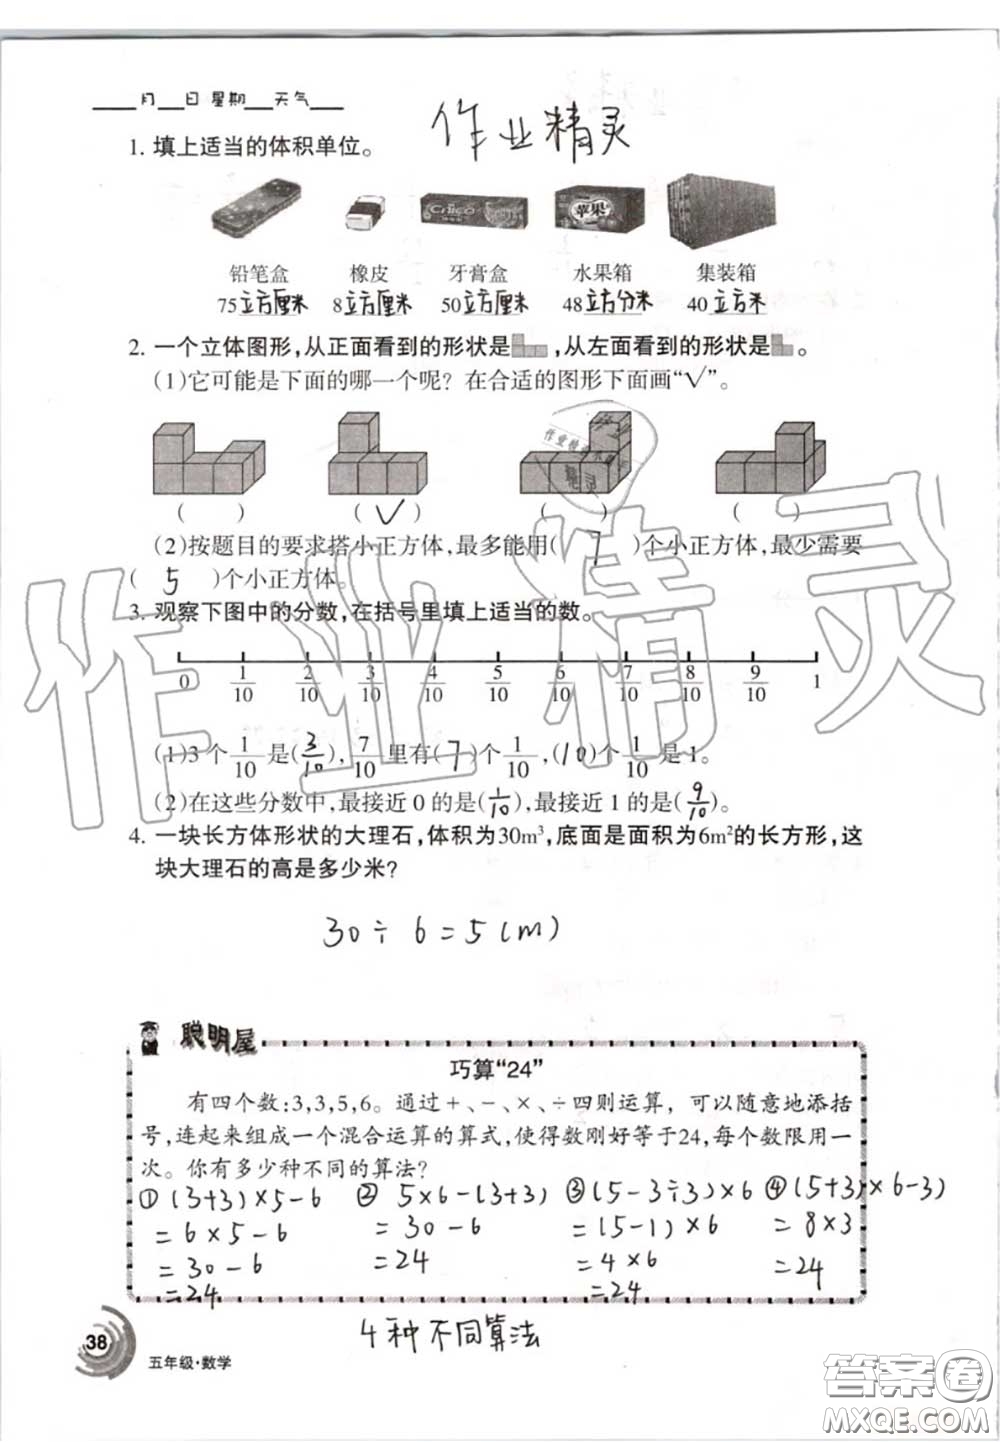 ___月___日 星期___天气___
作业精灵
1. 填上适当的体积单位。
Chico
苹果
铅笔盒 橡皮 牙膏盒 水果箱 集装箱
75立方厘米 8立方厘米 50立方厘米 48立方分米 40立方米
2. 一个立体图形,从正面看到的形状是,从左面看到的形状是。
(1)它可能是下面的哪一个呢? 在合适的图形下面画“√”。
( ) ( √ ) ( ) ( )
(2)按题目的要求搭小正方体,最多能用( 7 )个小正方体,最少需要
( 5 )个小正方体。
3. 观察下图中的分数,在括号里填上适当的数。
0 1/10 2/10 3/10 4/10 5/10 6/10 7/10 8/10 9/10 1
(1)3个1/10是(3/10),7/10里有(7)个1/10,(10)个1/10是1。
(2)在这些分数中,最接近0的是(1/10),最接近1的是(9/10)。
4. 一块长方体形状的大理石,体积为30m³,底面是面积为6m²的长方形,这
块大理石的高是多少米?
30÷6=5(m)
聪明屋
巧算“24”
有四个数:3,3,5,6。通过+、-、×、÷四则运算,可以随意地添括
号,连起来组成一个混合运算的算式,使得数刚好等于24,每个数限用一
次。你有多少种不同的算法?
①(3+3)×5-6 ②5×6-(3+3) ③(5-3÷3)×6 ④(5+3)×6-3)
=6×5-6 =30-6 =(5-1)×6 =8×3
=30-6 =24 =4×6 =24
=24 =24
4种不同算法
38
五年级·数学
作业精灵
答案卷
MXQE.COM